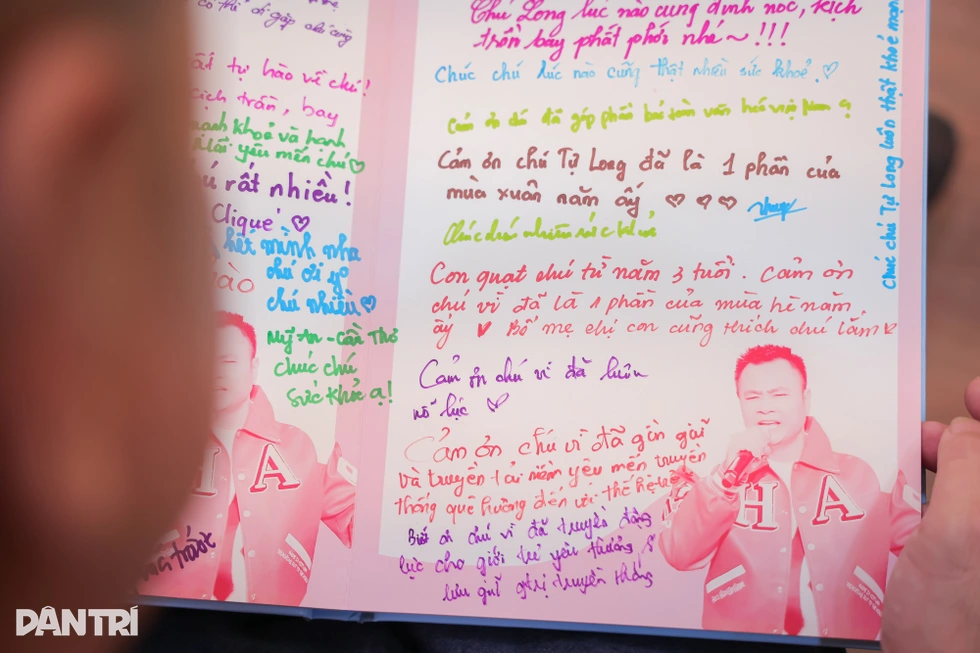 có thể đi gặp chú cùng
tự hào về chú!
kịch trần, bay
mạnh khoẻ và hạnh
yêu mến chú ♡
rất nhiều!
Clique' ♡
hết mình nha
chú ơi
chú nhiều ♡
Mỹ An - Cần Thơ
chúc chú
sức khỏe ạ!
trước
HA
Chú Long lúc nào cũng đỉnh nóc, kịch
trần bay phất phới nhé ~ !!!
Chúc chú lúc nào cũng thật nhiều sức khoẻ. ♡
Cảm ơn chú đã góp phần bảo tồn văn hoá việt Nam ạ
Cảm ơn chú Tự Long đã là 1 phần của
mùa xuân năm ấy ♡ ♡ ♡
Chúc chú nhiều sức khỏe
Con quạt chú từ năm 3 tuổi. Cảm ơn
chú vì đã là 1 phần của mùa hè năm
ấy ♥ Bố mẹ chị con cũng thích chú lắm ♡
Cảm ơn chú vì đã luôn
nỗ lực ♡
Cảm ơn chú vì đã gần gũi
và truyền tải niềm yêu mến truyền
thống quê hương đến với thế hệ trẻ
Biết ơn chú vì đã truyền động
lực cho giới trẻ yêu thương &
lưu giữ giá trị truyền thống
HA
Chúc chú Tự Long luôn thật khoẻ mạnh
DÂN TRÍ